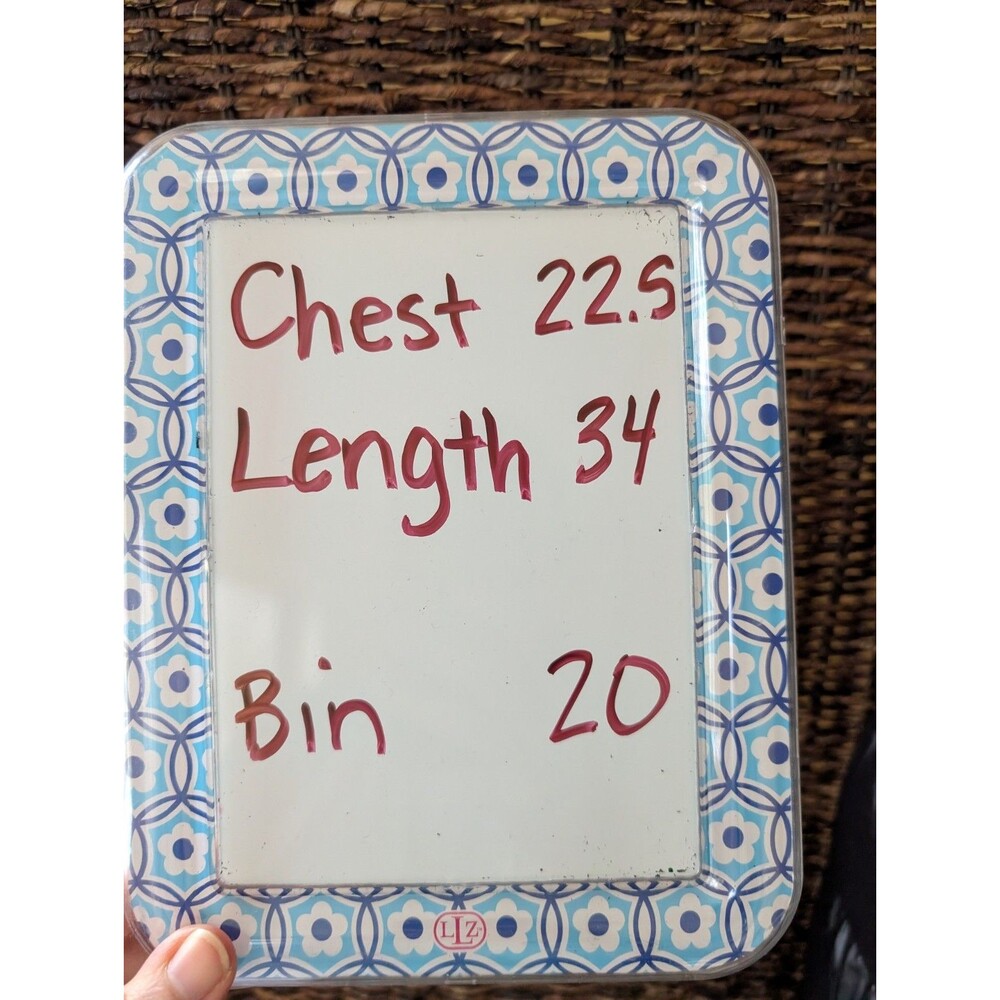 Chest 22.5
Length 34
Bin 20
LLZ